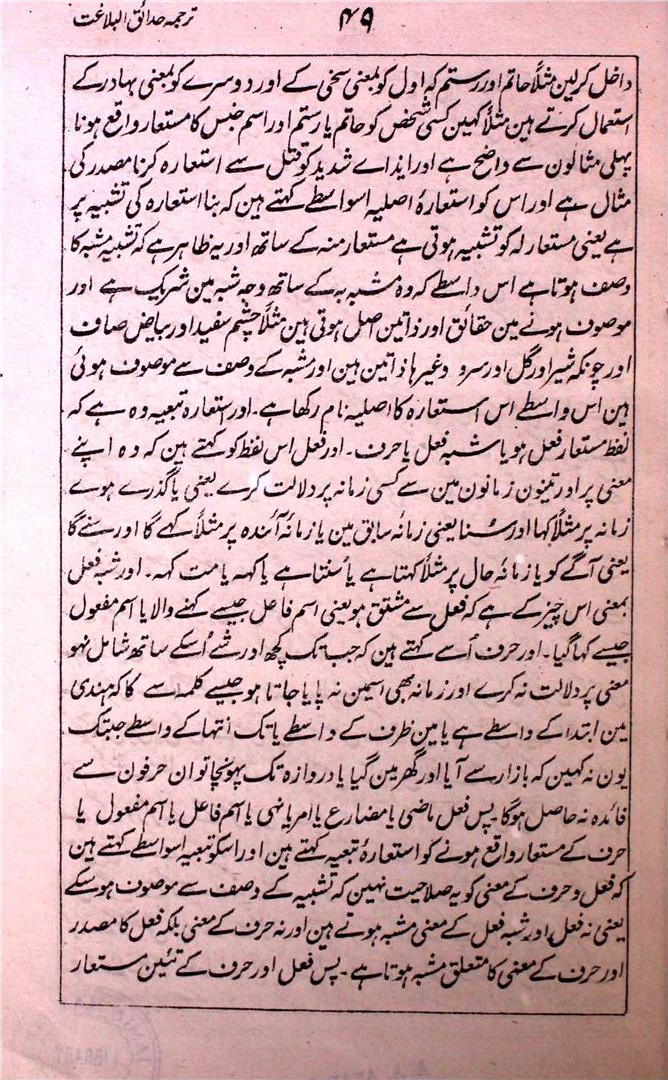 ترجمہ حدائق البلاغت
۴۹
داخل کرلین مثلاً حاتم اور رستم کہ اول کو بمعنی سخی کے اور دوسرے کو بمعنی بہادر کے
استعمال کرتے ہین مثلاً کہین کسی شخص کو حاتم یا رستم اور اسم جنس کا مستعار واقع ہونا
پہلی مثالون سے واضح ہے اور ایذاے شدید کو قتل سے استعارہ کرنا مصدر کی
مثال ہے اور اس کو استعارۂ اصلیہ اسواسطے کہتے ہین کہ بنا استعارہ کی تشبیہ پر
ہے یعنی مستعار لہ کو تشبیہ ہوتی ہے مستعار منہ کے ساتھ اور یہ ظاہر ہے کہ تشبیہ مشبہ کا
وصف ہوتا ہے اس واسطے کہ وہ مشبہ بہ کے ساتھ وجہ شبہ مین شریک ہے اور
موصوف ہونے مین حقائق اور ذاتین اصل ہوتی ہین مثلاً چشم سفید اور بیاض صاف
اور چونکہ شیر اور گل اور سرو وغیرہا ذاتین ہین اور مشبہ کے وصف سے موصوف ہوئی
ہین اس واسطے اس استعارہ کا اصلیہ نام رکھا ہے۔ اور استعارہ تبعیہ وہ ہے کہ
لفظ مستعار فعل ہو یا شبہ فعل یا حرف۔ اور فعل اس لفظ کو کہتے ہین کہ وہ اپنے
معنی پر اور تینون زمانون مین سے کسی زمانہ پر دلالت کرے یعنی یا گذرے ہوے
زمانہ پر مثلاً کہا اور سُنا یعنی زمانۂ سابق مین یا زمانۂ آئندہ پر مثلاً کہے گا اور سنے گا
یعنی آگے کو یا زمانۂ حال پر مثلاً کہتا ہے یا سنتا ہے یا کہہ یا مت کہہ۔ اور شبہ فعل
بمعنی اس چیز کے ہے کہ فعل سے مشتق ہو یعنی اسم فاعل جیسے کہنے والا یا اسم مفعول
جیسے کہا گیا۔ اور حرف اُسے کہتے ہین کہ جب تک کچھ اور شے اُسکے ساتھ شامل نہو
معنی پر دلالت نہ کرے اور زمانہ بھی اسمین نہ پایا جاتا ہو جیسے کلمہ سے کا کہ ہندی
مین ابتدا کے واسطے ہے یا مین ظرف کے واسطے یا تک انتہا کے واسطے جبتک
یون نہ کہین کہ بازار سے آیا اور گھر مین گیا یا دروازہ تک پہونچا تو ان حرفون سے
فائدہ نہ حاصل ہوگا۔ پس فعل ماضی یا مضارع یا امر یا نہی یا اسم فاعل یا اسم مفعول یا
حرف کے مستعار واقع ہونے کو استعارۂ تبعیہ کہتے ہین اور اسکو تبعیہ اسواسطے کہتے ہین
کہ فعل و حرف کے معنی کو یہ صلاحیت نہین کہ تشبیہ کے وصف سے موصوف ہوسکے
یعنی نہ فعل اور شبہ فعل کے معنی مشبہ ہوتے ہین اور نہ حرف کے معنی بلکہ فعل کا مصدر
اور حرف کے معنی کا متعلق مشبہ ہوتا ہے۔ پس فعل اور حرف کے تئین مستعار